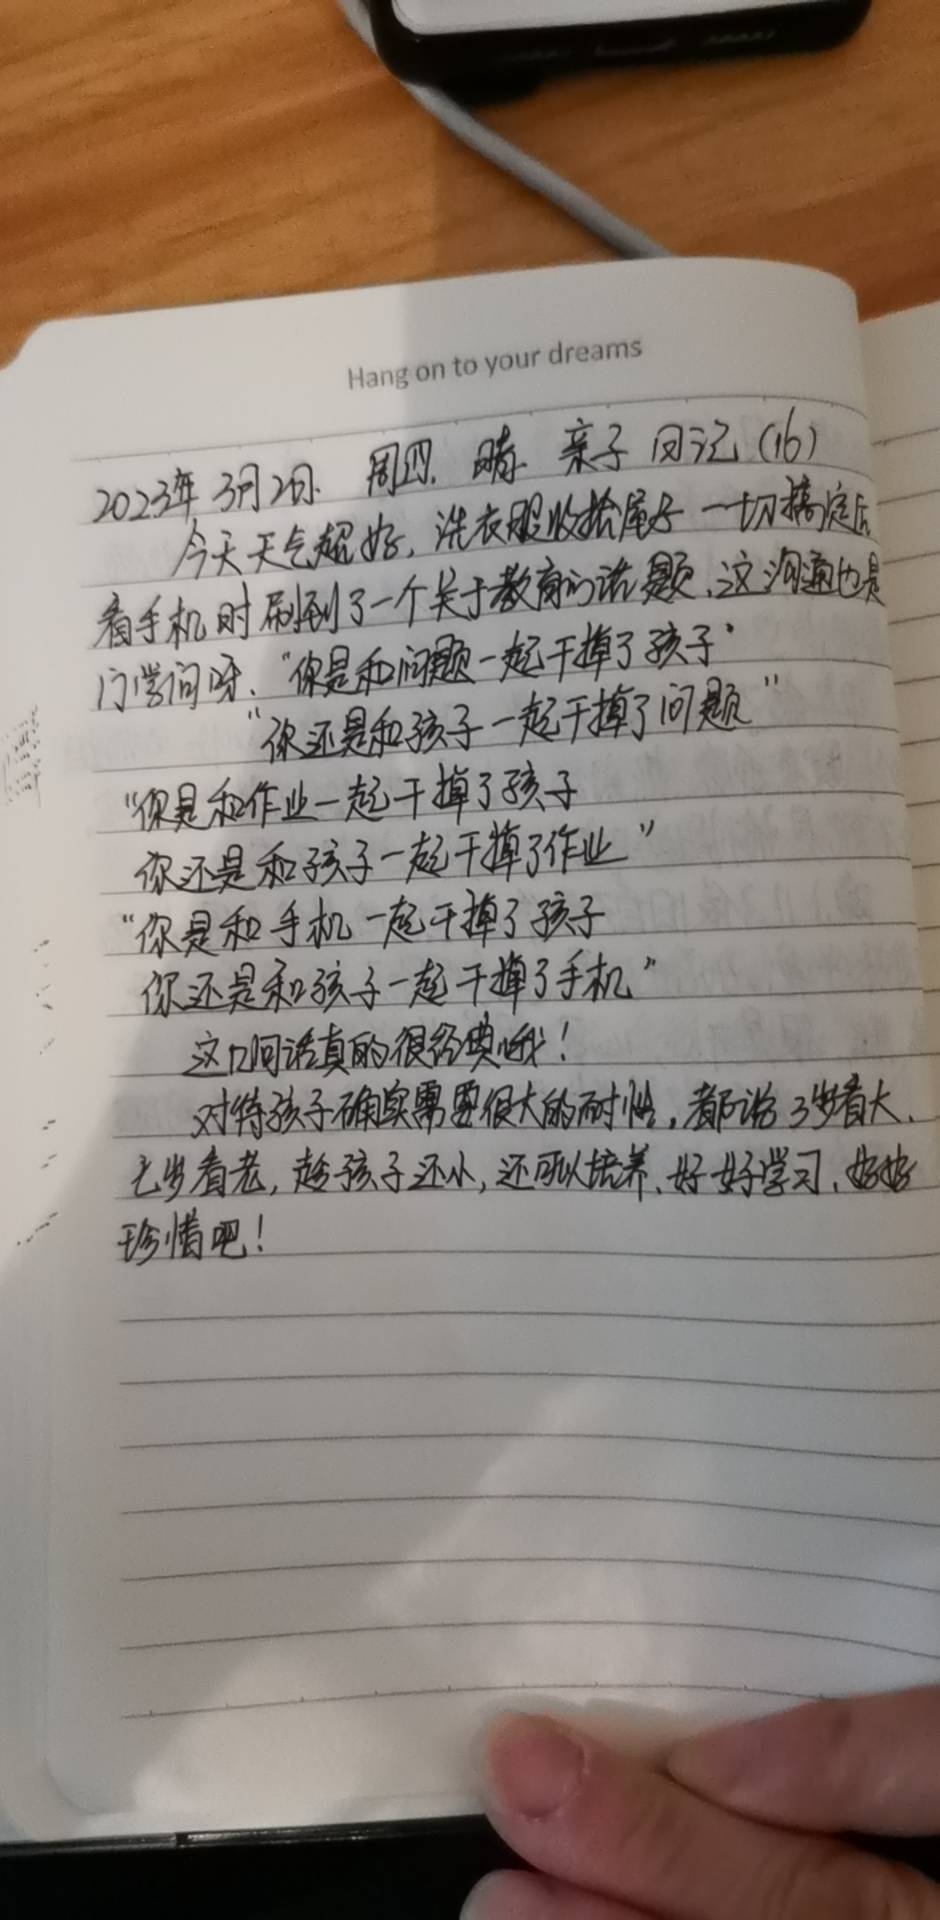 Hang on to your dreams
2023年3月2日. 周四. 晴. 亲子日记(16)
今天天气超好, 洗衣服收拾屋子一切搞定后
看手机时刷到了一个关于教育的话题,这沟通也是
门学问呀、"你是和问题一起干掉了孩子"
"你还是和孩子一起干掉了问题"
"你是和作业一起干掉了孩子
你还是和孩子一起干掉了作业"
"你是和手机一起干掉了孩子
你还是和孩子一起干掉了手机"
这几句话真的很经典哦!
对待孩子确实需要很大的耐性,都说3岁看大、
七岁看老,趁孩子还小,还可以培养、好好学习、好好
珍惜吧!